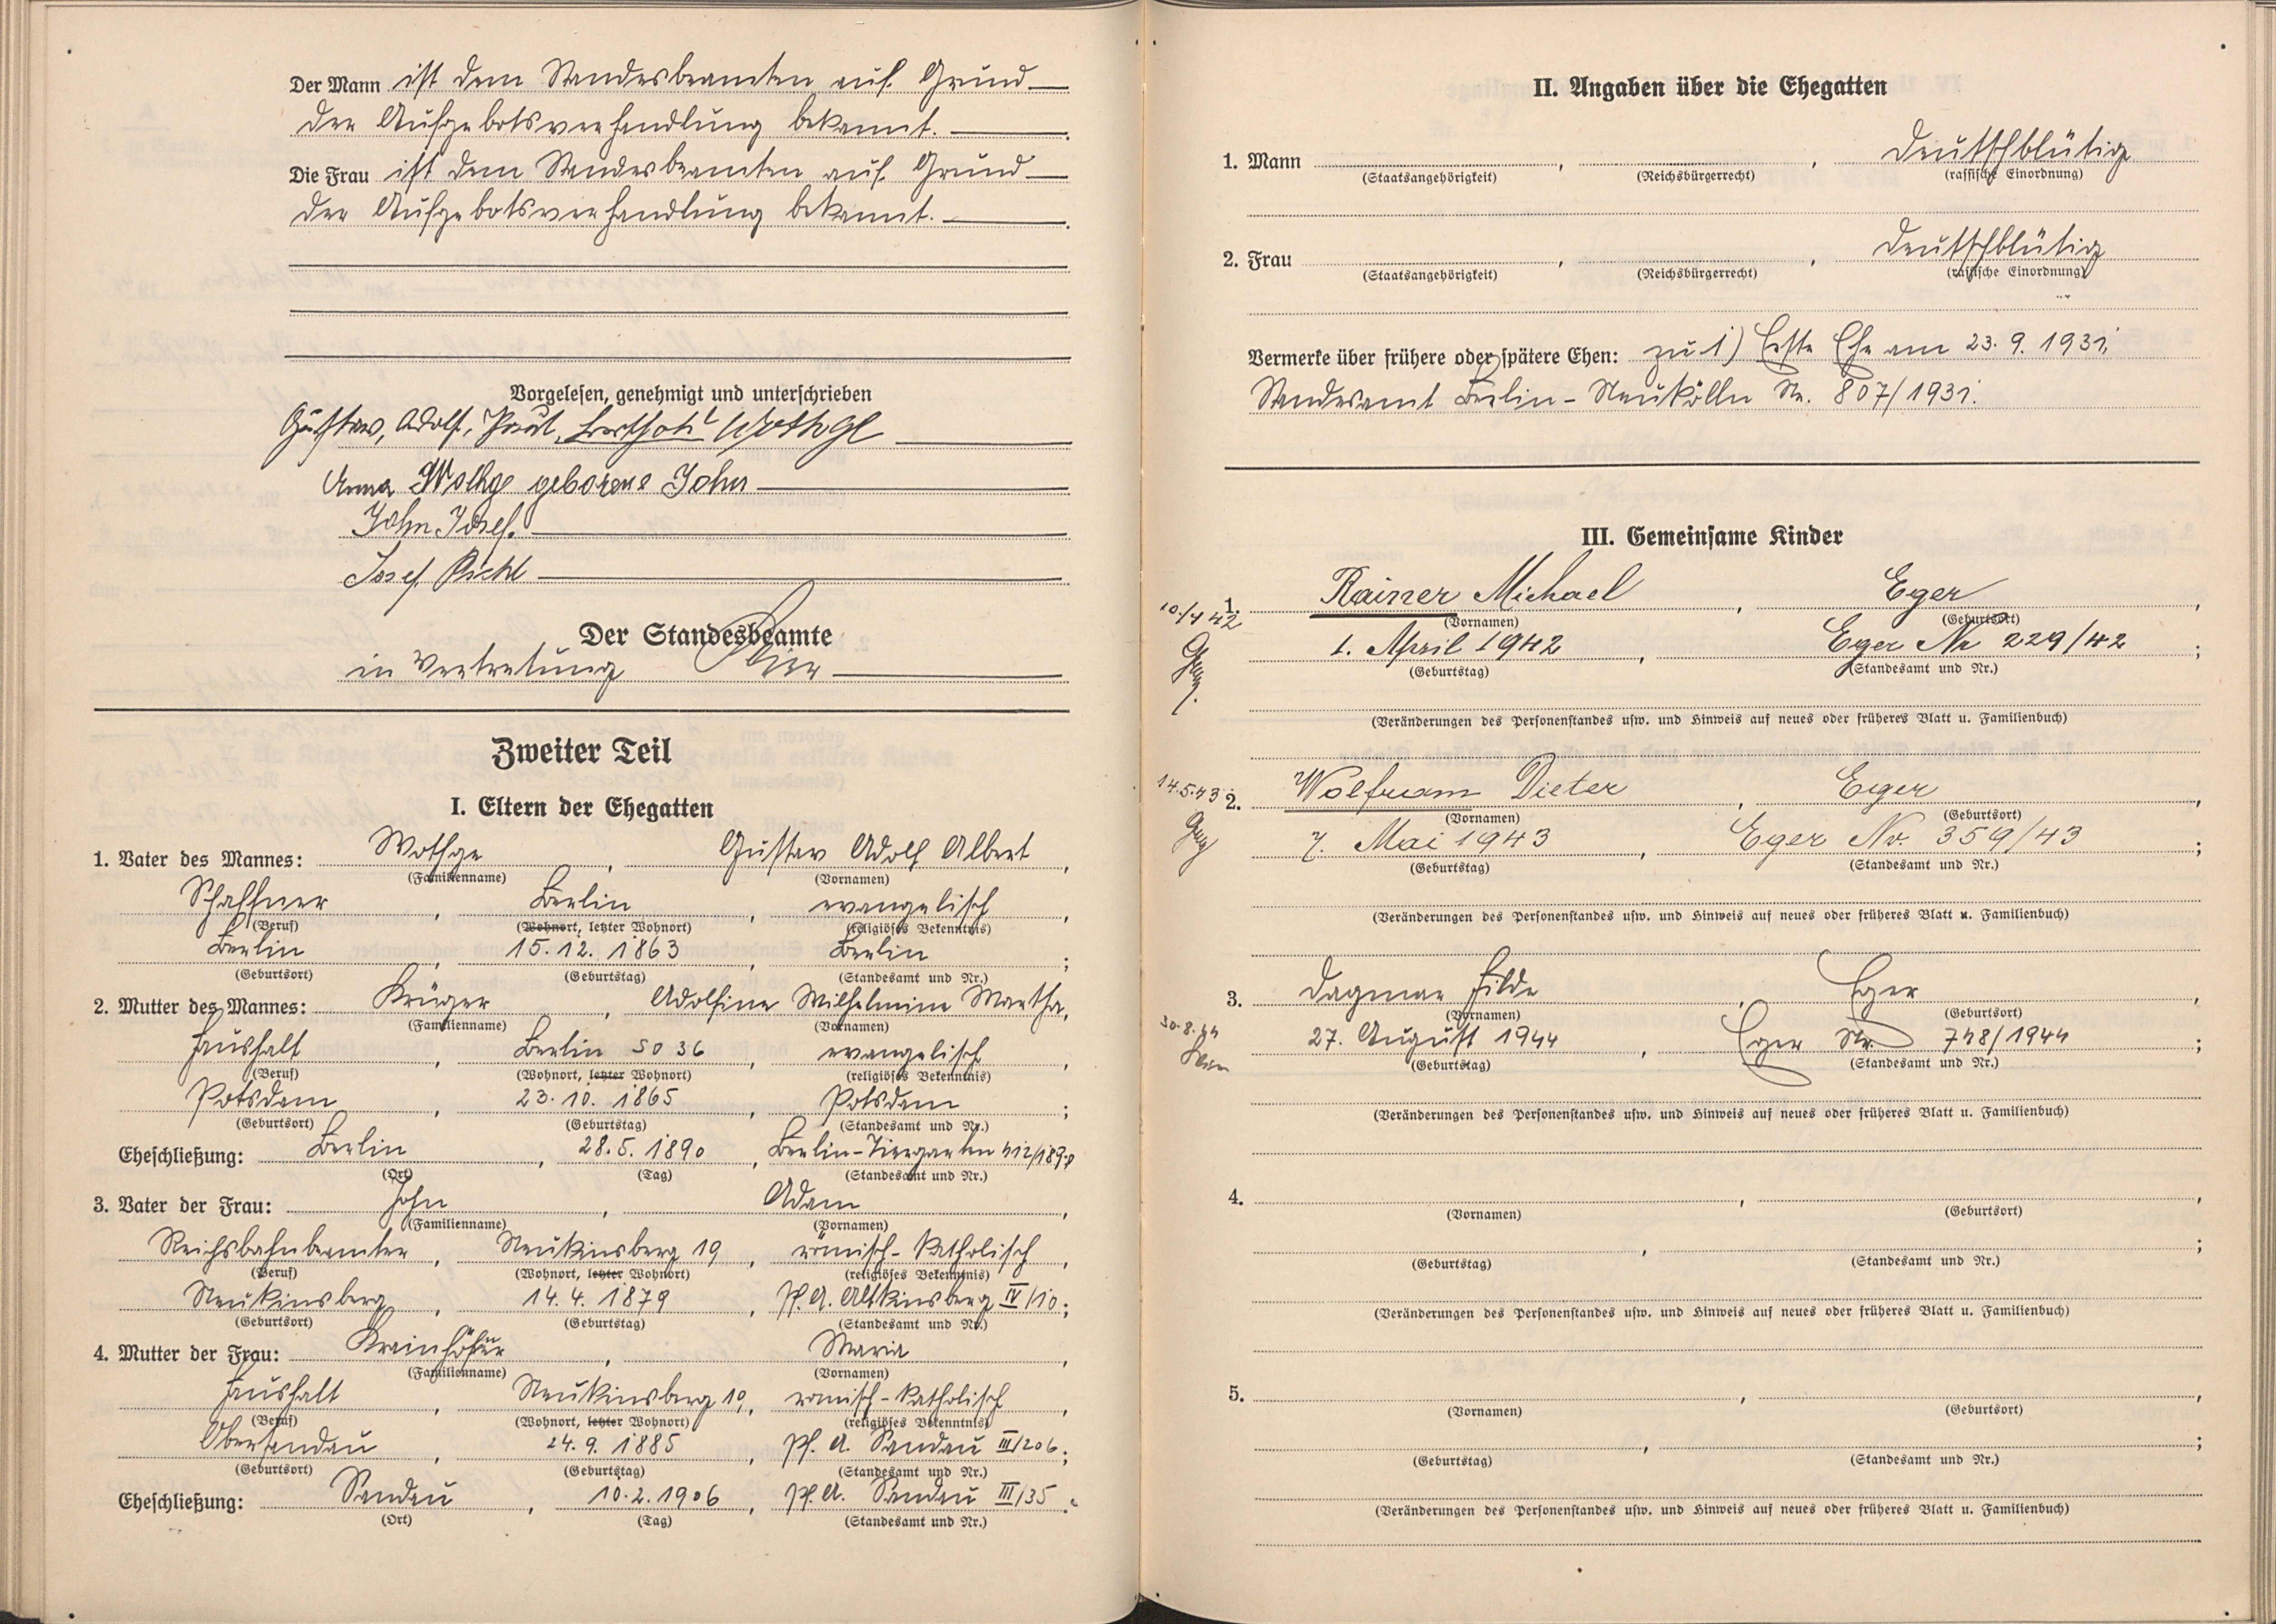 Der Mann ist dem Standesbeamten auf Grund
der Aufgebotsverhandlung bekannt.
Die Frau ist dem Standesbeamten auf Grund
der Aufgebotsverhandlung bekannt.
Vorgelesen, genehmigt und unterschrieben
Gustav, Adolf, Paul, Berthold Wothge
Anna Wothge geborene John
John Josef.
Josef
Der Standesbeamte
in Vertretung
Zweiter Teil
I. Eltern der Ehegatten
1. Vater des Mannes: Wothge, Gustav Adolf Albert,
(Familienname) (Vornamen)
Schaffner, Berlin, evangelisch,
(Beruf) (Wohnort, letzter Wohnort) (religiöses Bekenntnis)
Berlin, 15.12.1863, Berlin;
(Geburtsort) (Geburtstag) (Standesamt und Nr.)
2. Mutter des Mannes: Krüger, Adolfine Wilhelmine Martha,
(Familienname) (Vornamen)
Haushalt, Berlin SO 36, evangelisch,
(Beruf) (Wohnort, letzter Wohnort) (religiöses Bekenntnis)
Potsdam, 23.10.1865, Potsdam;
(Geburtsort) (Geburtstag) (Standesamt und Nr.)
Eheschließung: Berlin, 28.5.1890, Berlin-Tiergarten 412/1890
(Ort) (Tag) (Standesamt und Nr.)
3. Vater der Frau: John, Adam,
(Familienname) (Vornamen)
Reichsbahnbeamter, Neukinsberg 19, römisch-katholisch,
(Beruf) (Wohnort, letzter Wohnort) (religiöses Bekenntnis)
Neukinsberg, 14.4.1879, Pf. A. Altkinsberg IV/10;
(Geburtsort) (Geburtstag) (Standesamt und Nr.)
4. Mutter der Frau: Krainhöfner, Maria,
(Familienname) (Vornamen)
Haushalt, Neukinsberg 19, römisch-katholisch,
(Beruf) (Wohnort, letzter Wohnort) (religiöses Bekenntnis)
Obersandau, 24.9.1885, Pf. A. Sandau III/206;
(Geburtsort) (Geburtstag) (Standesamt und Nr.)
Eheschließung: Sandau, 10.2.1906, Pf. A. Sandau III/35.
(Ort) (Tag) (Standesamt und Nr.)
II. Angaben über die Ehegatten
1. Mann , , deutschblütig
(Staatsangehörigkeit) (Reichsbürgerrecht) (rassische Einordnung)
2. Frau , , deutschblütig
(Staatsangehörigkeit) (Reichsbürgerrecht) (rassische Einordnung)
Vermerke über frühere oder spätere Ehen: zu 1) Erste Ehe am 23.9.1931,
Standesamt Berlin-Neukölln Nr. 807/1931.
III. Gemeinsame Kinder
10./4 42 1. Rainer Michael, Eger,
(Vornamen) (Geburtsort)
1. April 1942, Eger Nr 229/42;
(Geburtstag) (Standesamt und Nr.)
(Veränderungen des Personenstandes usw. und Hinweis auf neues oder früheres Blatt u. Familienbuch)
14.5.43 2. Wolfram Dieter, Eger,
(Vornamen) (Geburtsort)
7. Mai 1943, Eger Nr. 359/43;
(Geburtstag) (Standesamt und Nr.)
(Veränderungen des Personenstandes usw. und Hinweis auf neues oder früheres Blatt u. Familienbuch)
3. Dagmar Hilde, Eger,
(Vornamen) (Geburtsort)
30.8.44 27. August 1944, Eger Nr. 748/1944;
(Geburtstag) (Standesamt und Nr.)
(Veränderungen des Personenstandes usw. und Hinweis auf neues oder früheres Blatt u. Familienbuch)
4. , ,
(Vornamen) (Geburtsort)
, ;
(Geburtstag) (Standesamt und Nr.)
(Veränderungen des Personenstandes usw. und Hinweis auf neues oder früheres Blatt u. Familienbuch)
5. , ,
(Vornamen) (Geburtsort)
, ;
(Geburtstag) (Standesamt und Nr.)
(Veränderungen des Personenstandes usw. und Hinweis auf neues oder früheres Blatt u. Familienbuch)